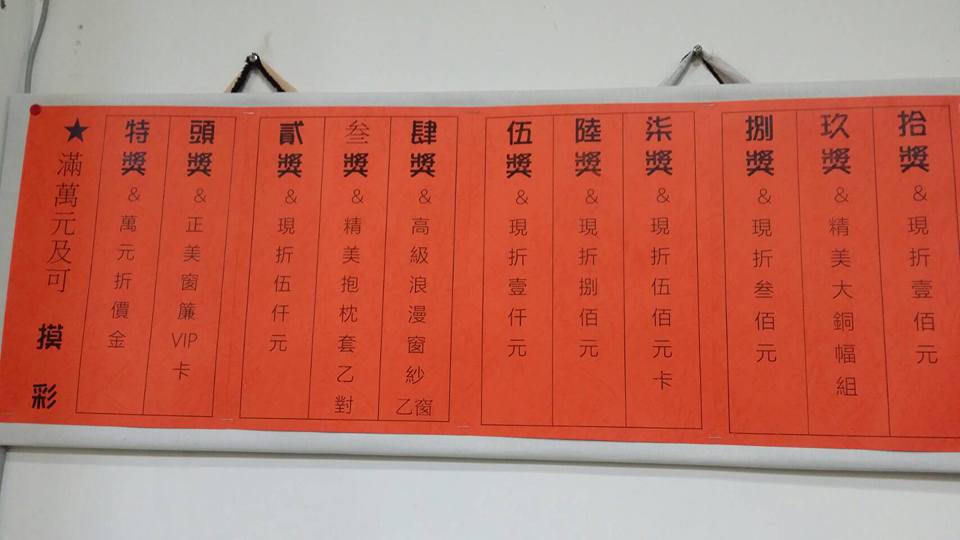 ★滿萬元及可 摸彩
特獎&萬元折價金
頭獎&正美窗簾VIP卡
貳獎&現折伍仟元
叁獎&精美抱枕套乙對
肆獎&高級浪漫窗紗乙窗
伍獎&現折壹仟元
陸獎&現折捌佰元
柒獎&現折伍佰元卡
捌獎&現折叁佰元
玖獎&精美大銅幅組
拾獎&現折壹佰元